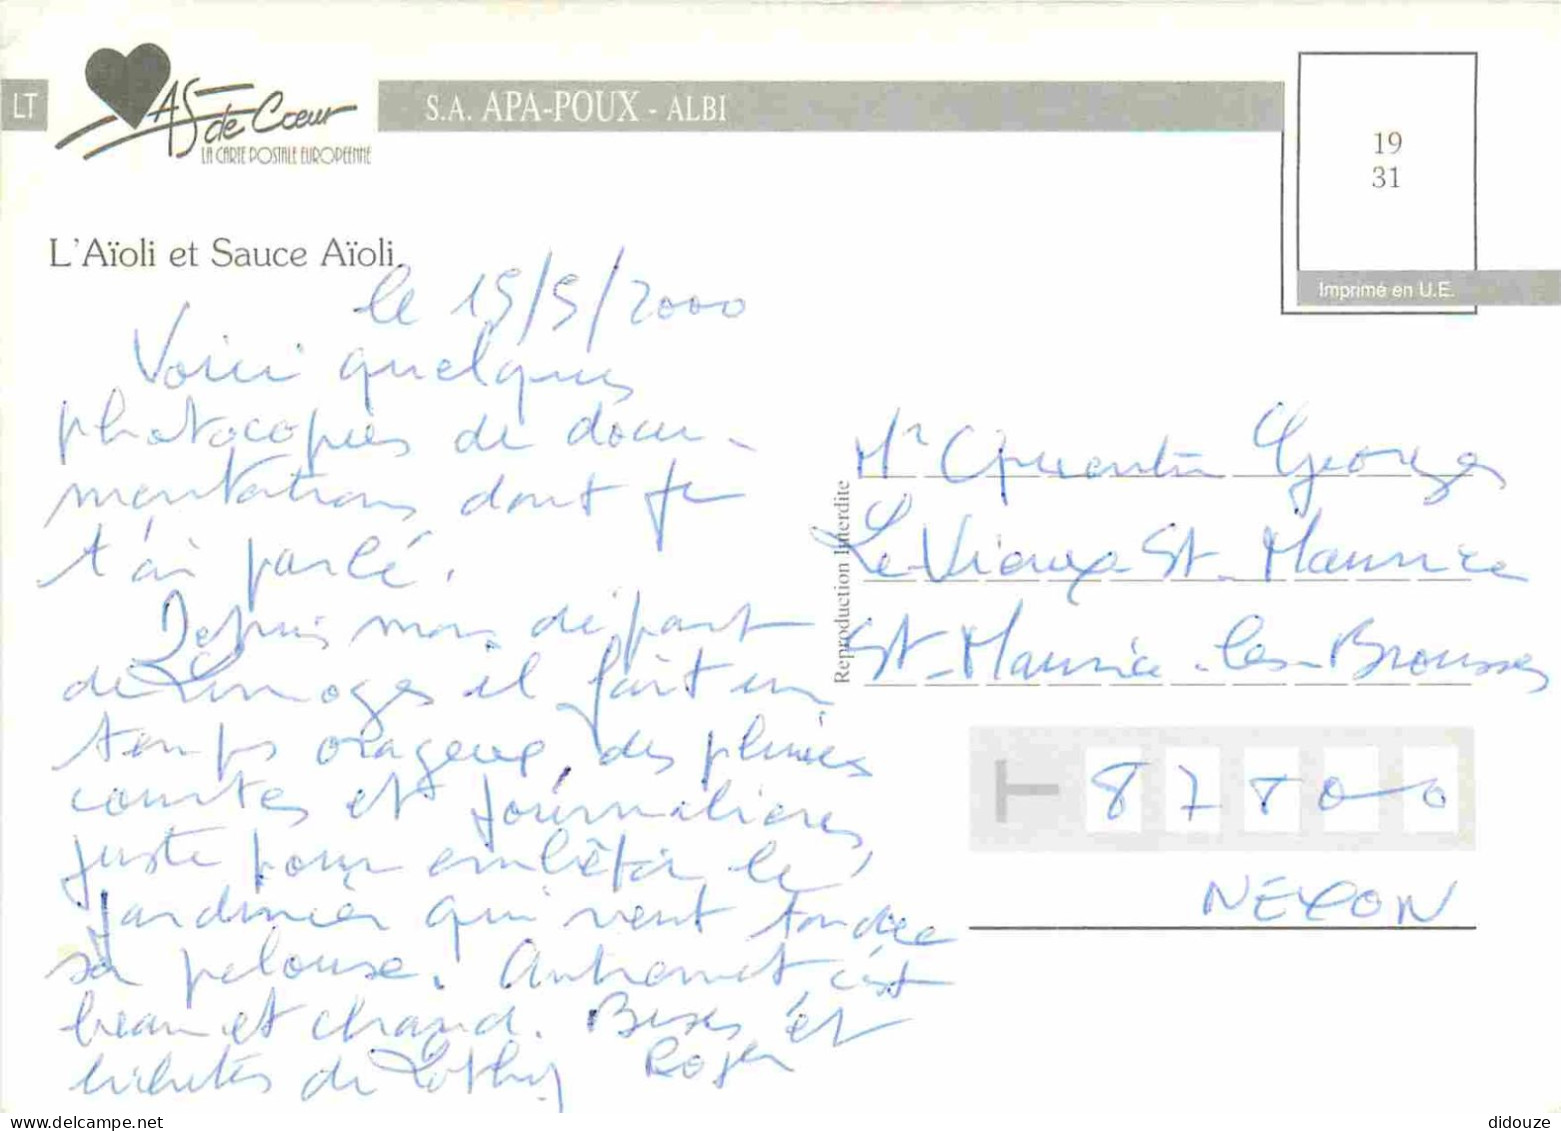 LT
AS de Cœur
LA CARTE POSTALE EUROPÉENNE
S.A. APA-POUX - ALBI
19
31
Imprimé en U.E.
L'Aïoli et Sauce Aïoli.
le 15/5/2000
Voici quelques
photocopies de docu-
mentations dont je
t'ai parlé.
Depuis mon départ
de Limoges il fait un
temps orageux, des pluies
courtes et journalières,
juste pour embêter le
jardinier qui veut tondre
sa pelouse. Autrement, c'est
beau et chaud. Bises et
de Roger
Reproduction Interdite
Mr Quentin Georges
Le Vieux St-Maurice
St-Maurice-les-Brousses
87800
NEXON
didouze